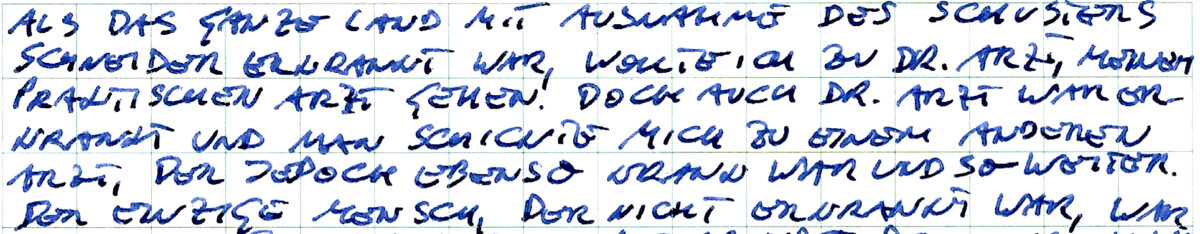 ALS DAS GANZE LAND MIT AUSNAHME DES SCHUSTERS
SCHNEIDER ERKRANKT WAR, WOLLTE ICH ZU DR. ARZT, MEINEM
PRAKTISCHEN ARZT GEHEN. DOCH AUCH DR. ARZT WAR ER-
KRANKT UND MAN SCHICKTE MICH ZU EINEM ANDEREN
ARZT, DER JEDOCH EBENSO KRANK WAR UND SO WEITER.
DER EINZIGE MENSCH, DER NICHT ERKRANKT WAR, WAR